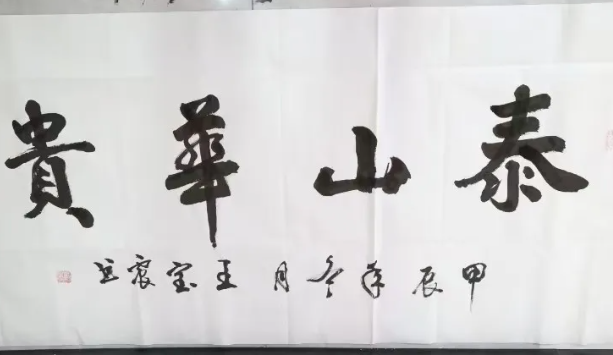 泰山華貴
甲辰年冬月王宝震